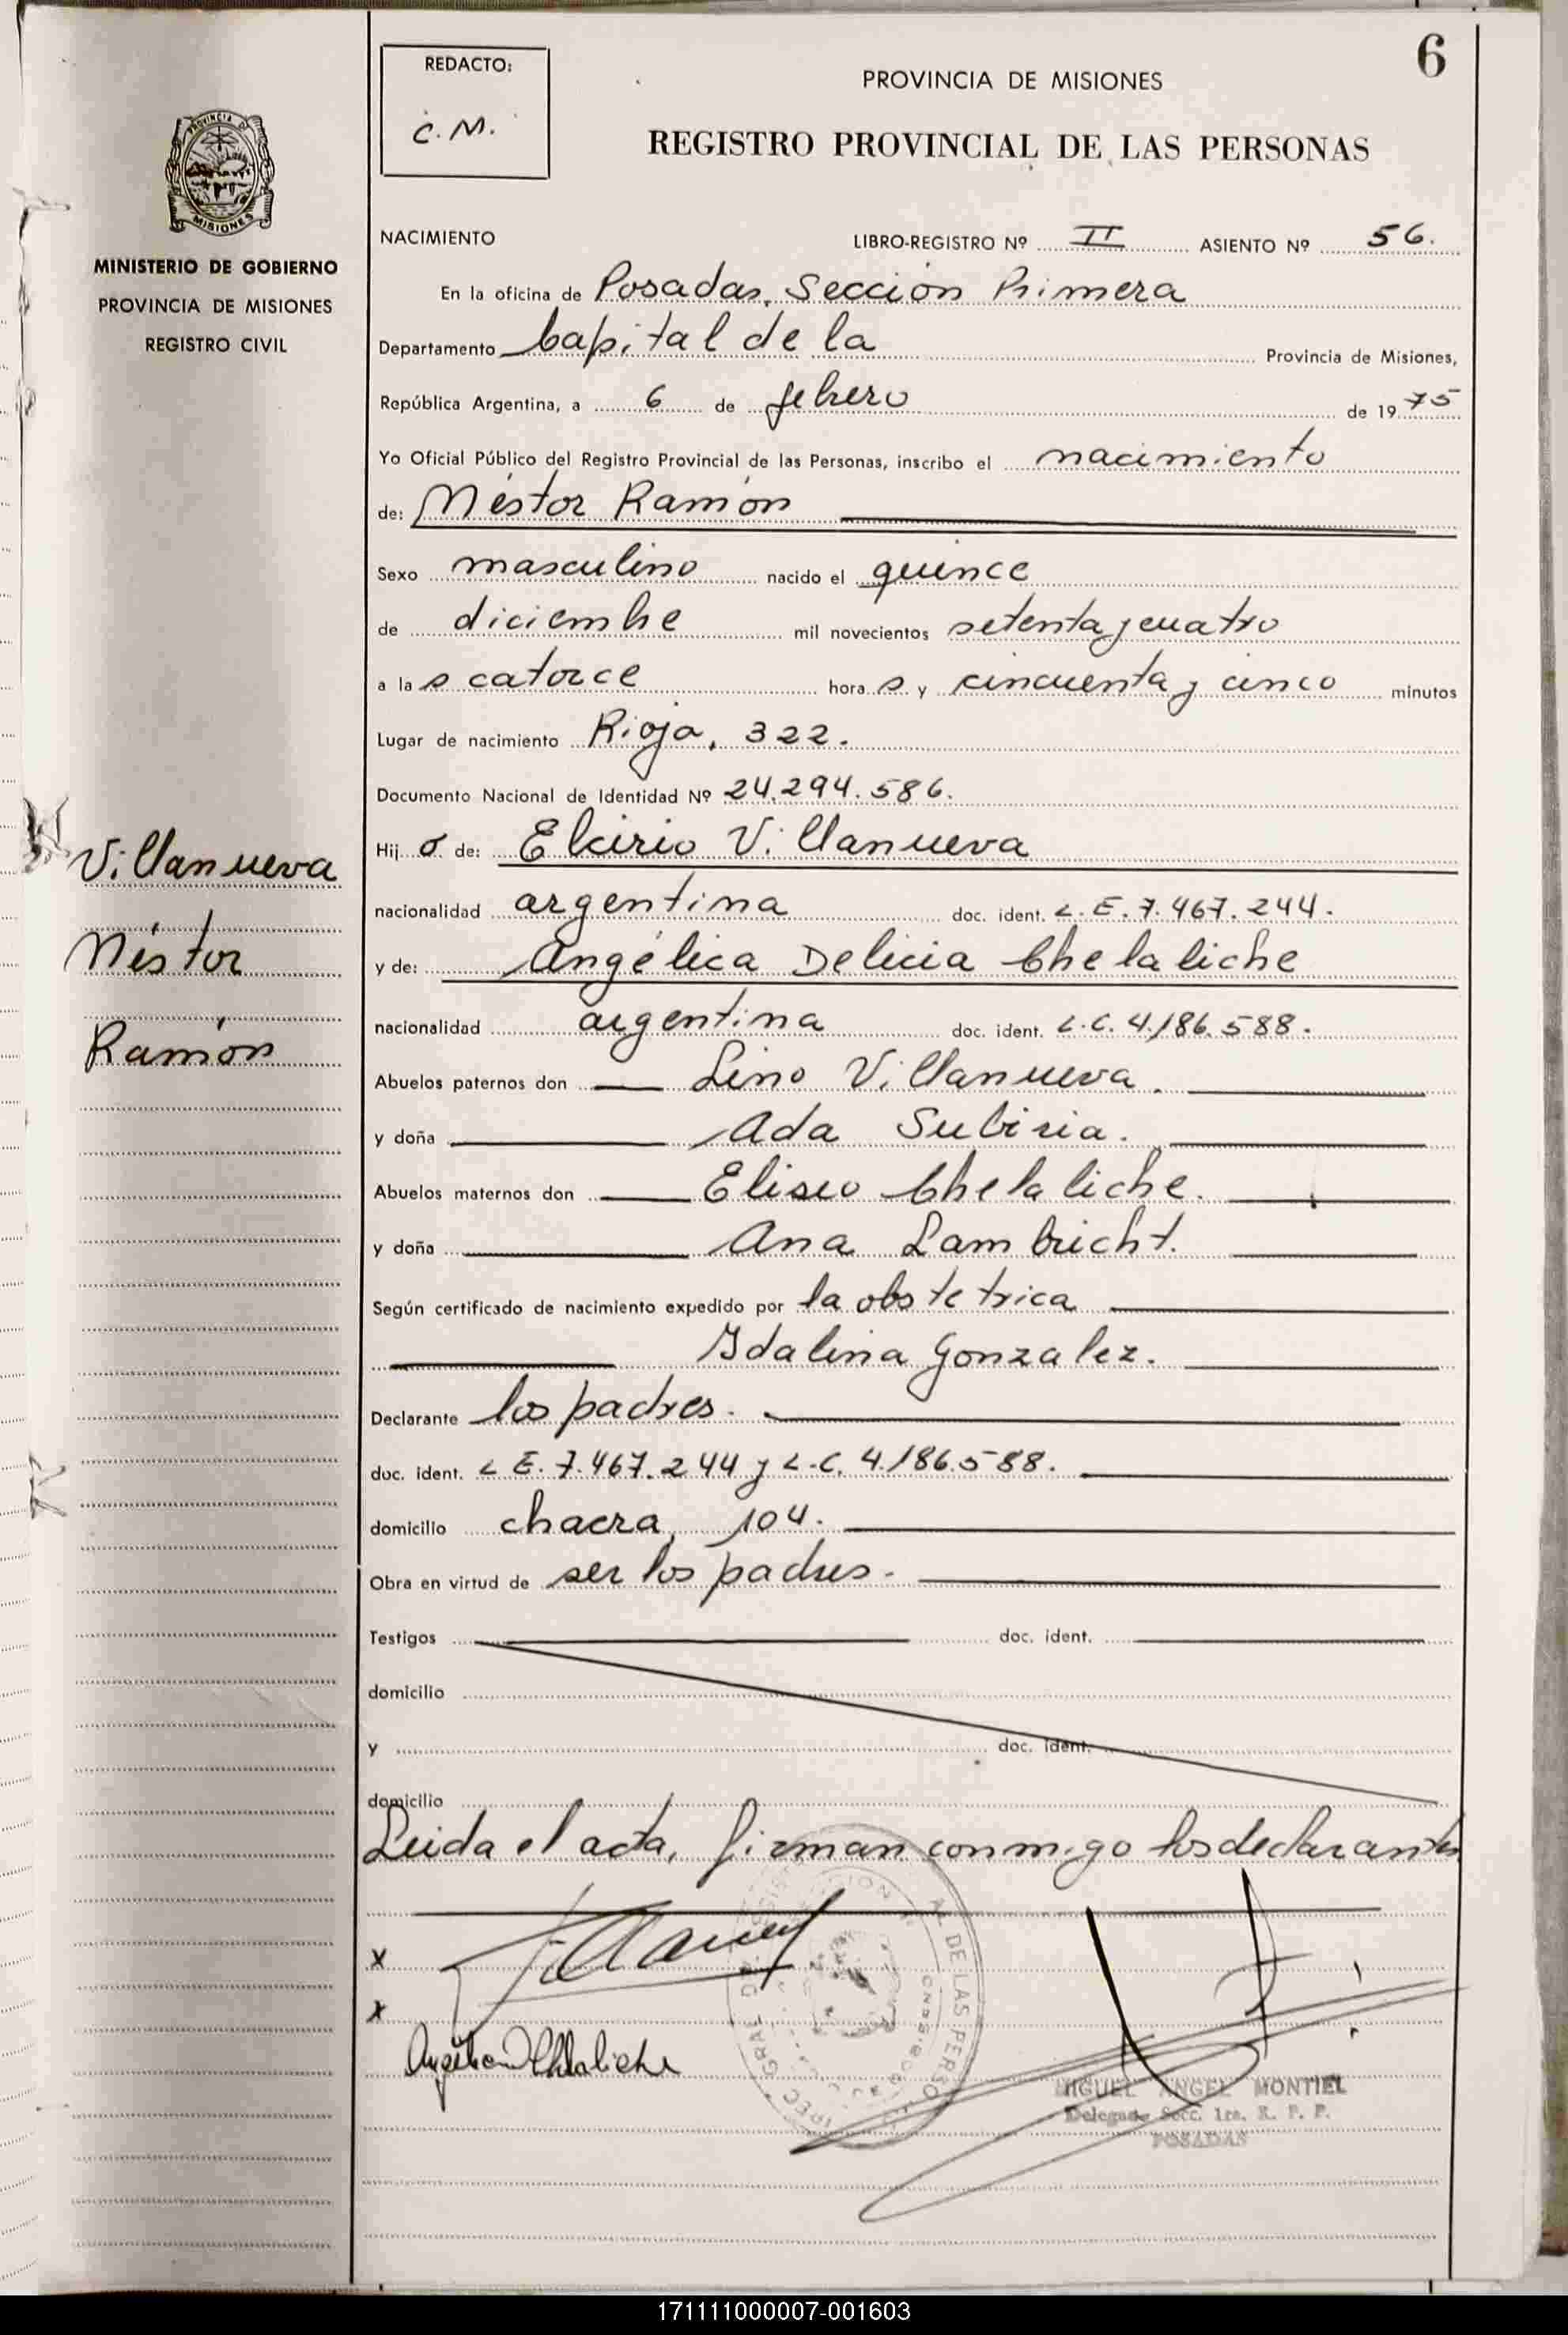 6
REDACTO:
C. M.
PROVINCIA DE MISIONES
REGISTRO PROVINCIAL DE LAS PERSONAS
PROVINCIA DE
MISIONES
MINISTERIO DE GOBIERNO
PROVINCIA DE MISIONES
REGISTRO CIVIL
NACIMIENTO LIBRO-REGISTRO Nº II ASIENTO Nº 56.
En la oficina de Posadas, Sección Primera
Departamento Capital de la Provincia de Misiones,
República Argentina, a 6 de febrero de 1975
Yo Oficial Público del Registro Provincial de las Personas, inscribo el nacimiento
de: Néstor Ramón
Sexo masculino nacido el quince
de diciembre mil novecientos setenta y cuatro
a las catorce horas y cincuenta y cinco minutos
Lugar de nacimiento Rioja, 322.
Documento Nacional de Identidad Nº 24.294.586.
Hijo de: Elcirio Villanueva
nacionalidad argentina doc. ident. L.E. 7.467.244.
y de: Angélica Delicia Chelaliche
nacionalidad argentina doc. ident. L.C. 4.186.588.
Abuelos paternos don Lino Villanueva.
y doña Ada Subiria.
Abuelos maternos don Eliseo Chelaliche.
y doña Ana Lambricht.
Según certificado de nacimiento expedido por la obstetrica
Idalina Gonzalez.
Declarante los padres.
doc. ident. L E. 7.467.244 y L.C. 4.186.588.
domicilio chacra, 104.
Obra en virtud de ser los padres.
Testigos doc. ident.
domicilio
y doc. ident.
domicilio
Leida el acta, firman conmigo los declarantes
x
x
Villanueva
Néstor
Ramón
MIGUEL ANGEL MONTIEL
Delegado Secc. 1ra. R. P. P.
POSADAS
171111000007-001603